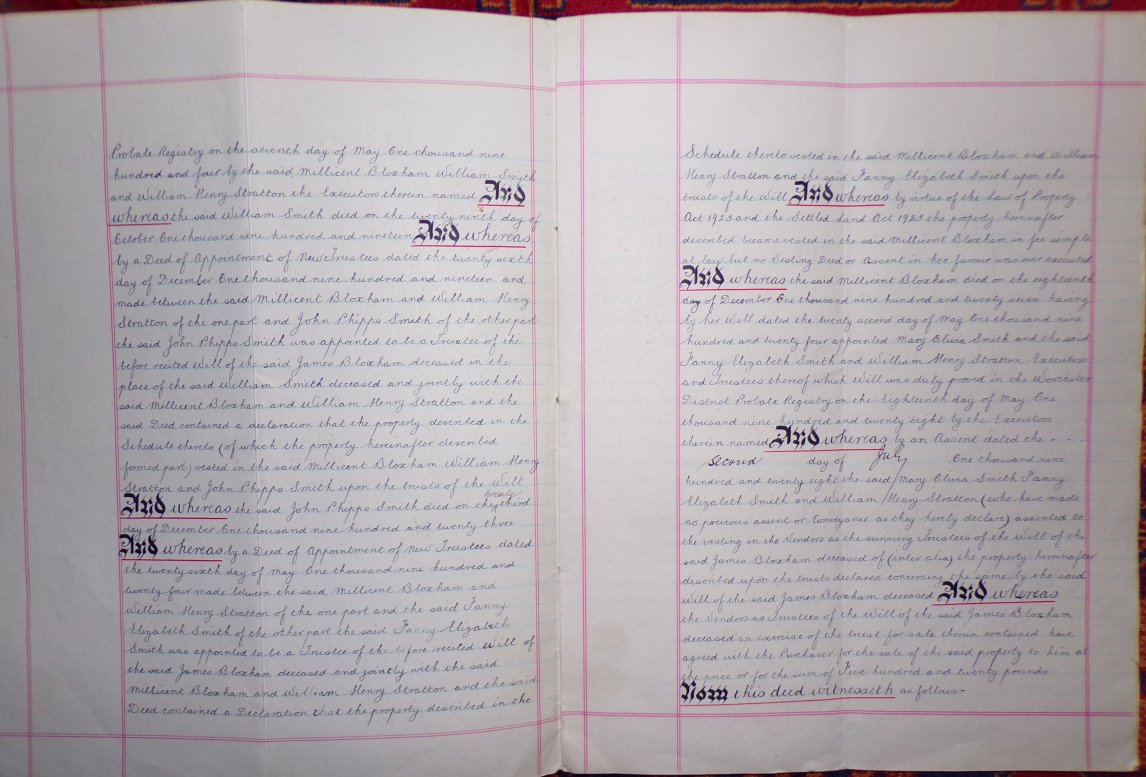 Probate Registry on the seventh day of May One thousand nine
hundred and four by the said Millicent Bloxham William Smith
and William Henry Stratton the Executors therein named And
whereas the said William Smith died on the twenty ninth day of
October One thousand nine hundred and nineteen And whereas
by a Deed of Appointment of New Trustees dated the twenty sixth
day of December One thousand nine hundred and nineteen and
made between the said Millicent Bloxham and William Henry
Stratton of the one part and John Phipps Smith of the other part
the said John Phipps Smith was appointed to be a Trustee of the
before recited Will of the said James Bloxham deceased in the
place of the said William Smith deceased and jointly with the
said Millicent Bloxham and William Henry Stratton and the
said Deed contained a declaration that the property described in the
Schedule thereto (of which the property hereinafter described
formed part) vested in the said Millicent Bloxham William Henry
Stratton and John Phipps Smith upon the trusts of the Will
And whereas the said John Phipps Smith died on the twenty third
day of December One thousand nine hundred and twenty three
And whereas by a Deed of Appointment of New Trustees dated
the twenty sixth day of May One thousand nine hundred and
twenty four made between the said Millicent Bloxham and
William Henry Stratton of the one part and the said Fanny
Elizabeth Smith of the other part the said Fanny Elizabeth
Smith was appointed to be a Trustee of the before recited Will of
the said James Bloxham deceased and jointly with the said
Millicent Bloxham and William Henry Stratton and the said
Deed contained a Declaration that the property described in the
Schedule thereto vested in the said Millicent Bloxham and William
Henry Stratton and the said Fanny Elizabeth Smith upon the
trusts of the Will And whereas by virtue of the Law of Property
Act 1925 and the Settled Land Act 1925 the property hereinafter
described became vested in the said Millicent Bloxham in fee simple
at law but no Vesting Deed or Assent in her favour was ever executed
And whereas the said Millicent Bloxham died on the eighteenth
day of December One thousand nine hundred and twenty seven having
by her Will dated the twenty second day of May One thousand nine
hundred and twenty four appointed Mary Olivia Smith and the said
Fanny Elizabeth Smith and William Henry Stratton Executors
and Trustees thereof which Will was duly proved in the Worcester
District Probate Registry on the Eighteenth day of May One
thousand nine hundred and twenty eight by the Executors
therein named And whereas by an Assent dated the - - -
second day of July One thousand nine
hundred and twenty eight the said Mary Olivia Smith Fanny
Elizabeth Smith and William Henry Stratton (who have made
no previous assent or Conveyance as they hereby declare) assented to
the vesting in the Vendors as the surviving Trustees of the Will of the
said James Bloxham deceased of (inter alia) the property hereinafter
described upon the trusts declared concerning the same by the said
Will of the said James Bloxham deceased And whereas
the Vendors as Trustees of the Will of the said James Bloxham
deceased in exercise of the trust for sale therein contained have
agreed with the Purchaser for the sale of the said property to him at
the price or for the sum of Five hundred and twenty pounds
Now this deed witnesseth as follows -